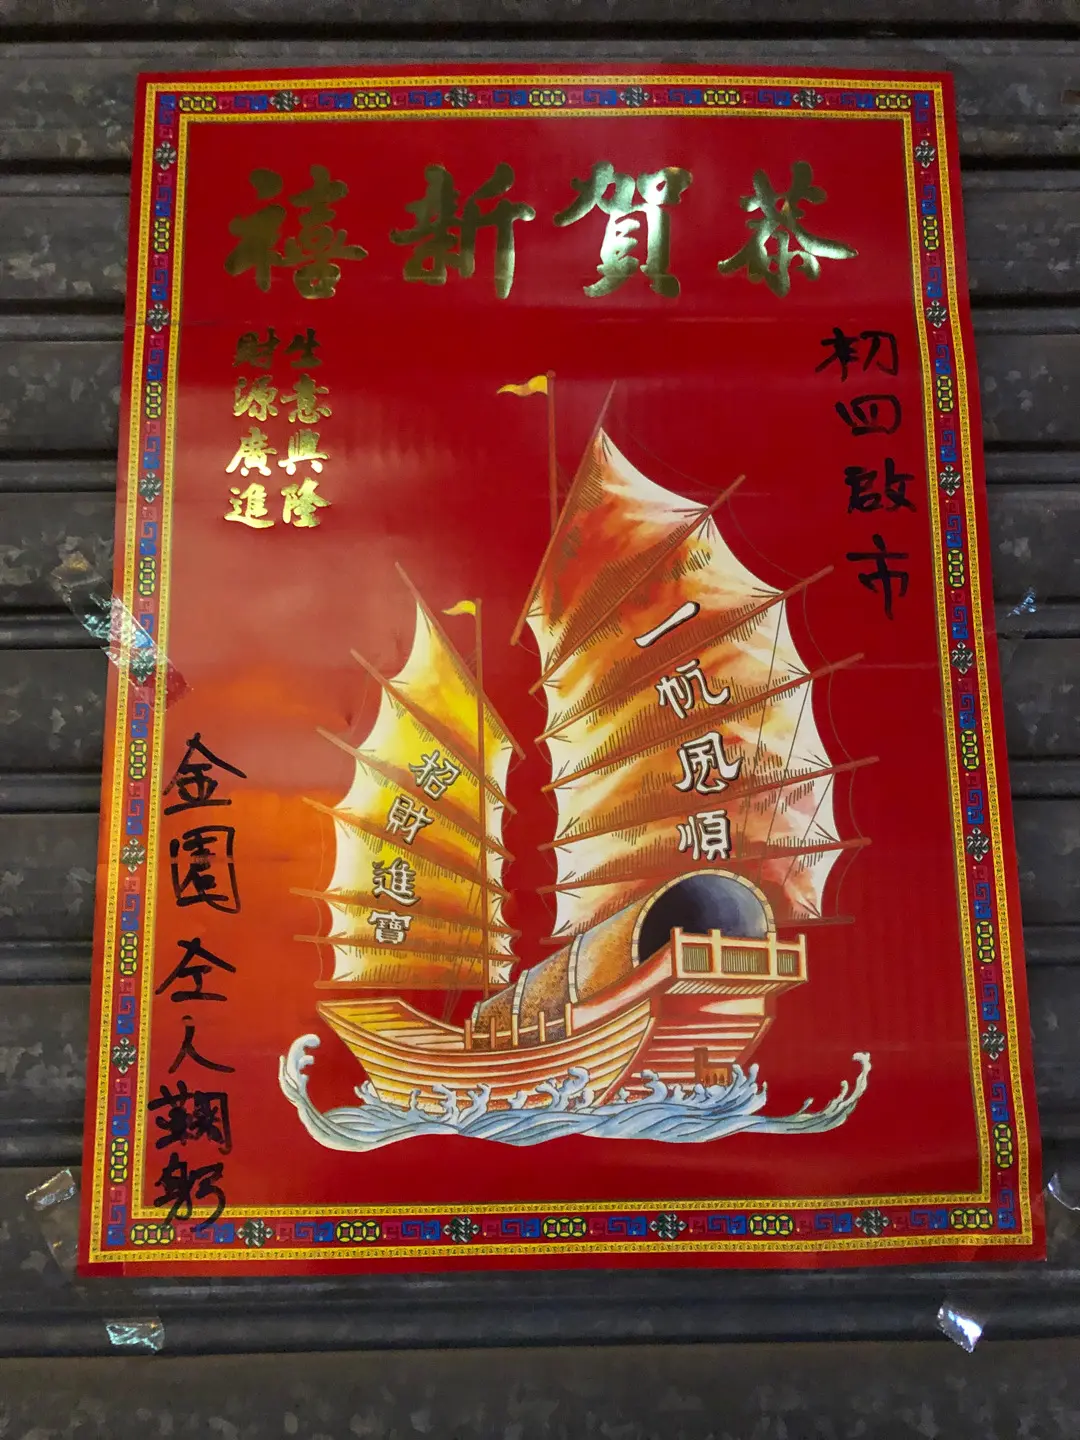 恭賀新禧
初四啟市
生意興隆
財源廣進
一帆風順
招財進寶
金園仝人鞠躬